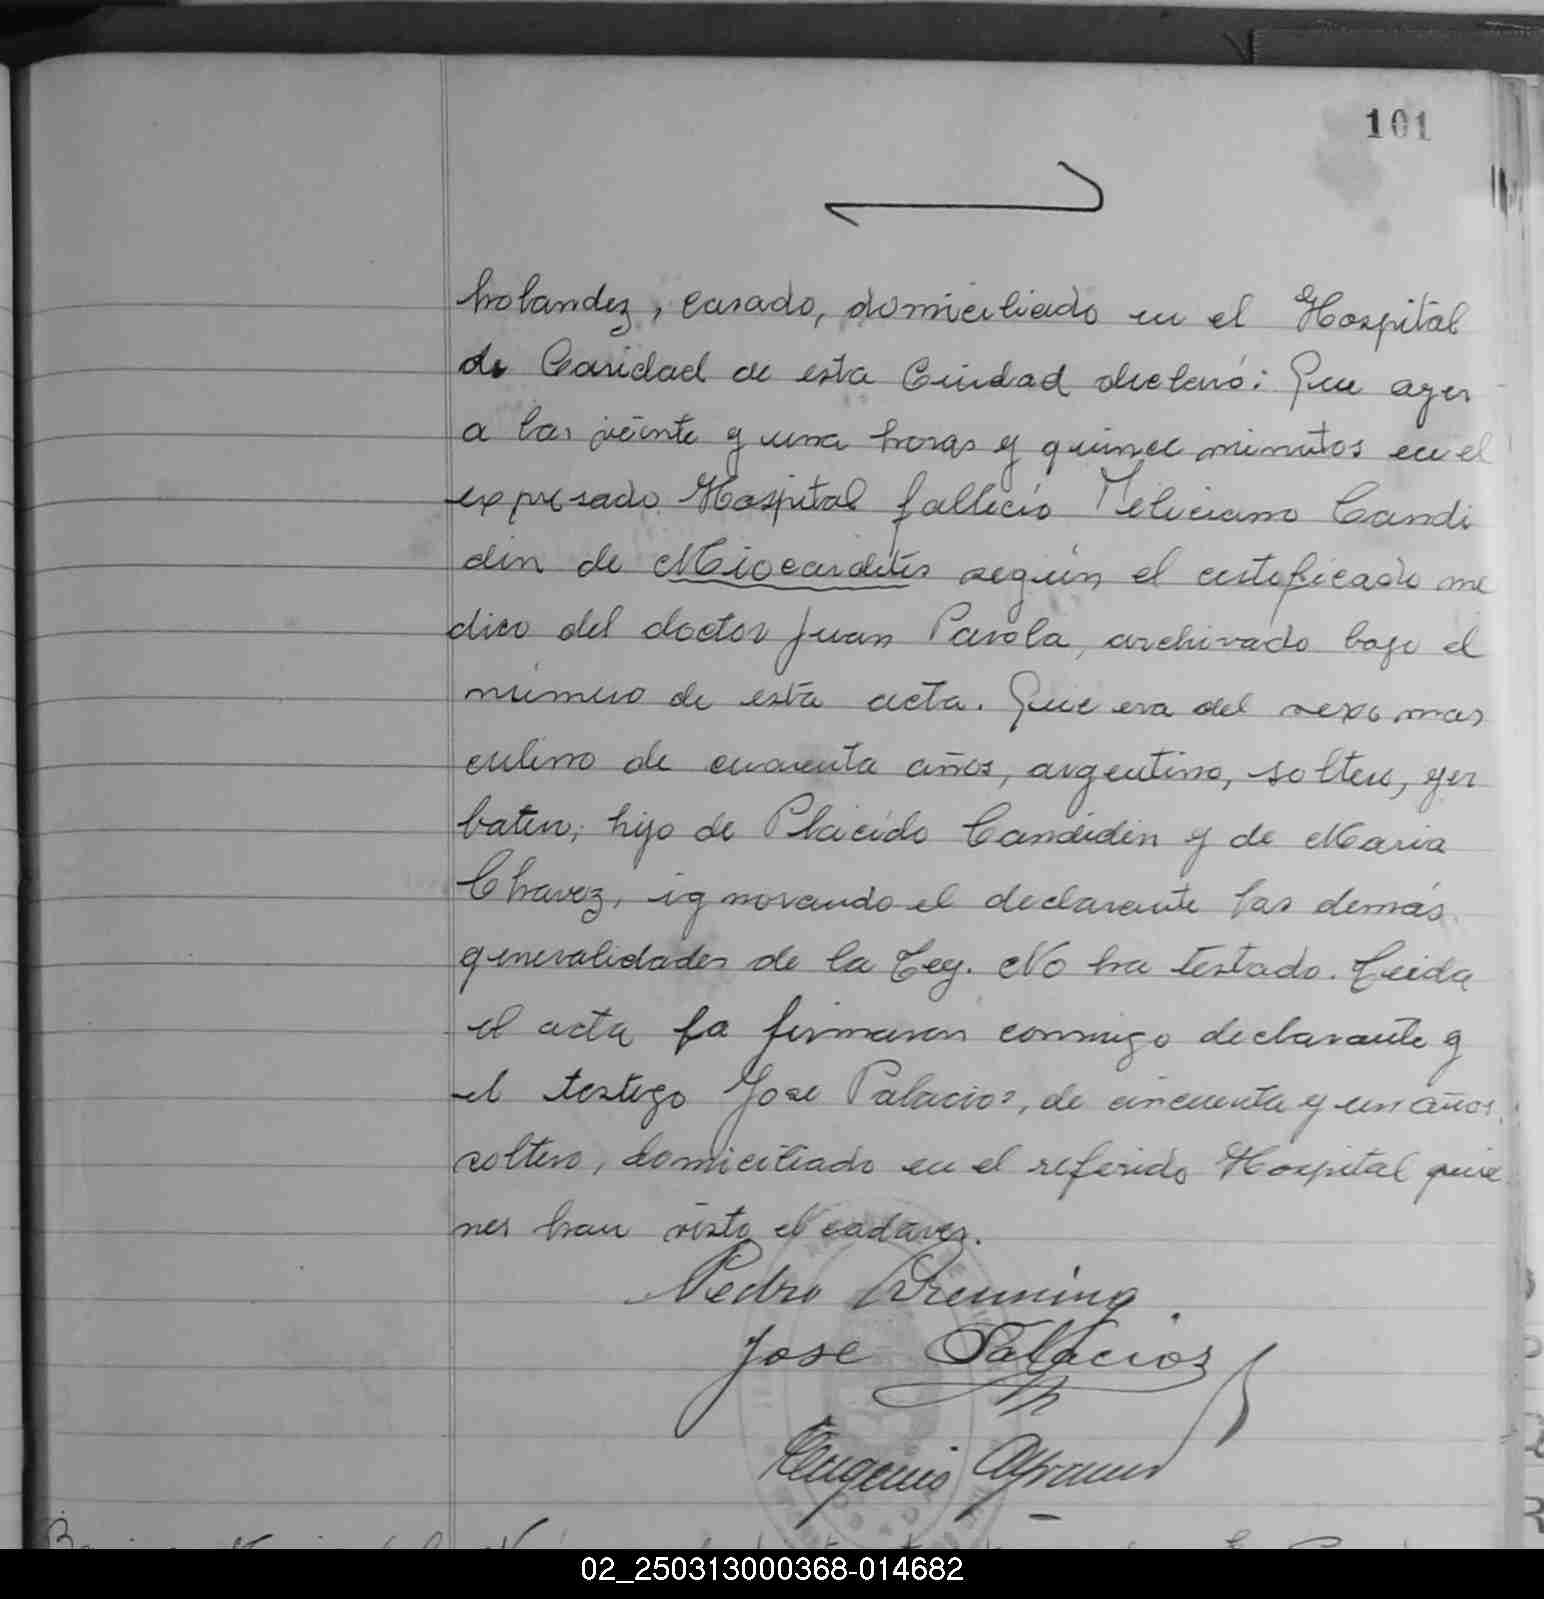 101
holandez, casado, domiciliado en el Hospital
de Caridad de esta Ciudad declaró: Que ayer
a las veinte y una horas y quince minutos en el
expresado Hospital falleció Feliciano Candi
din de Miocarditis según el certificado me
dico del doctor Juan Parola, archivado bajo el
número de esta acta. Que era del sexo mas
culino de cuarenta años, argentino, soltero, yer
batero, hijo de Placido Candidin y de Maria
Chavez, ignorando el declarante las demás
generalidades de la Ley. No ha testado. Leida
el acta la firmaron conmigo declarante y
el testigo Jose Palacios, de cincuenta y un años,
soltero, domiciliado en el referido Hospital quie
nes han visto el cadaver.
Pedro Breuning
Jose Palacios
Eugenio
02_250313000368-014682